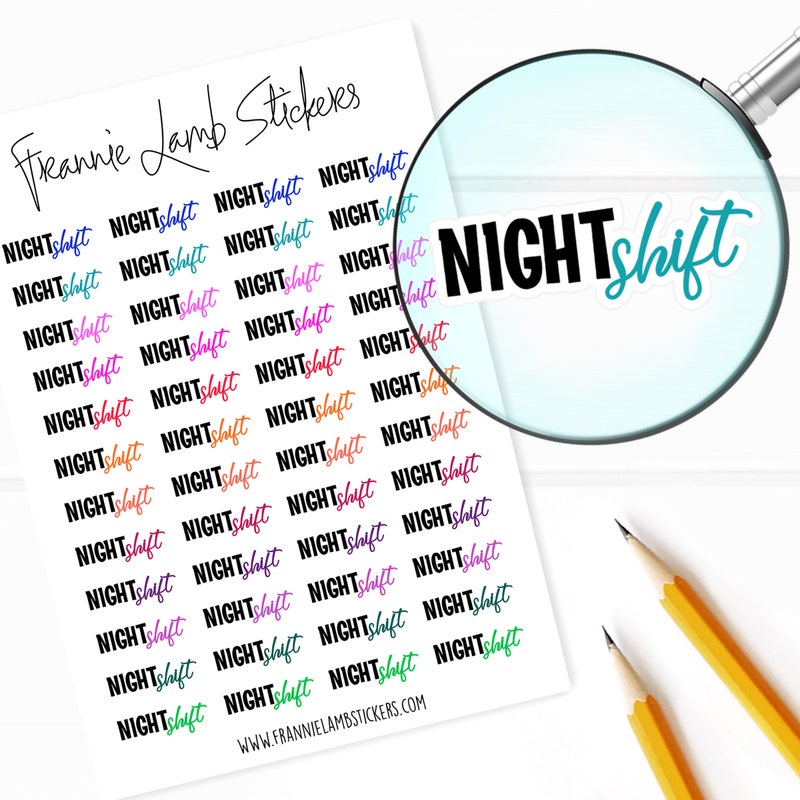 Frannie Lamb Stickers
NIGHTshift NIGHTshift NIGHTshift NIGHTshift
NIGHTshift NIGHTshift NIGHTshift NIGHTshift
NIGHTshift NIGHTshift NIGHTshift NIGHTshift
NIGHTshift NIGHTshift NIGHTshift NIGHTshift
NIGHTshift NIGHTshift NIGHTshift NIGHTshift
NIGHTshift NIGHTshift NIGHTshift NIGHTshift
NIGHTshift NIGHTshift NIGHTshift NIGHTshift
NIGHTshift NIGHTshift NIGHTshift NIGHTshift
NIGHTshift NIGHTshift NIGHTshift NIGHTshift
NIGHTshift NIGHTshift NIGHTshift NIGHTshift
NIGHTshift NIGHTshift NIGHTshift NIGHTshift
NIGHTshift NIGHTshift NIGHTshift NIGHTshift
WWW.FRANNIELAMBSTICKERS.COM
NIGHTshift